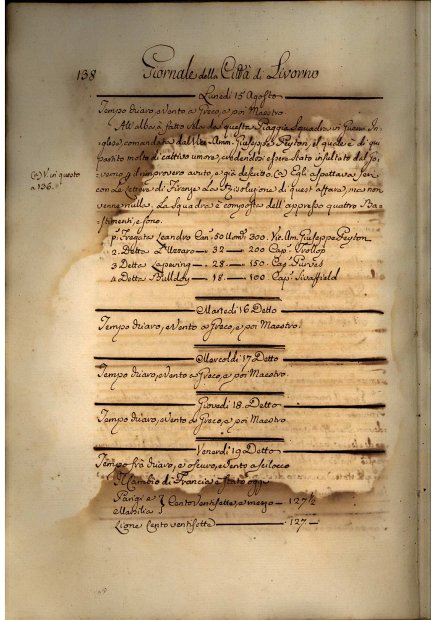 138
Giornale della Città di Livorno
Lunedì 15 Agosto
Tempo chiaro, e Vento a Greco, e poi Maestro
All'alba à fatto Vela da questa Piaggia Squadra in Guerra In-
glese, comandata dal Vice-Amm. Giuseppe Peyton, il quale è di qui
partito molto di cattivo umore, credendosi essere stato insultato dal
verno p. il rimprovero avuto, e già descritto. (a) Egli aspettava Jeri
(a) V. in questo
a 136.
con le lettere di Firenze la risoluzione di quest' affare, ma non
venne nulla. La Squadra è composta dell' appresso quattro Ba-
stimenti, e sono.
p.ª Fregata Leandro Can. 50 Uom. 300. Vic. Am. Giuseppe Peyton
2. Detta 32 — 200 Cap. Trollop
3 Detta Lapwing — 28 — 150 Cap. Purves
4 Detta Bulldog — 18 — 100 Cap.
Martedì 16 Detto
Tempo chiaro, e Vento a Greco, e poi Maestro.
Mercoldì 17 Detto
Tempo chiaro, e Vento a Greco, e poi Maestro
Giovedì 18 Detto
Tempo chiaro, e Vento a Greco, e poi Maestro
Venerdì 19 Detto
Tempo frà chiaro, e oscuro, e Vento a Scilocco
Il Cambio di Francia è stato oggi
Parigi e } Cento ventisette, e mezzo — 127½
Marsilia
Lione Cento ventisette — 127 —